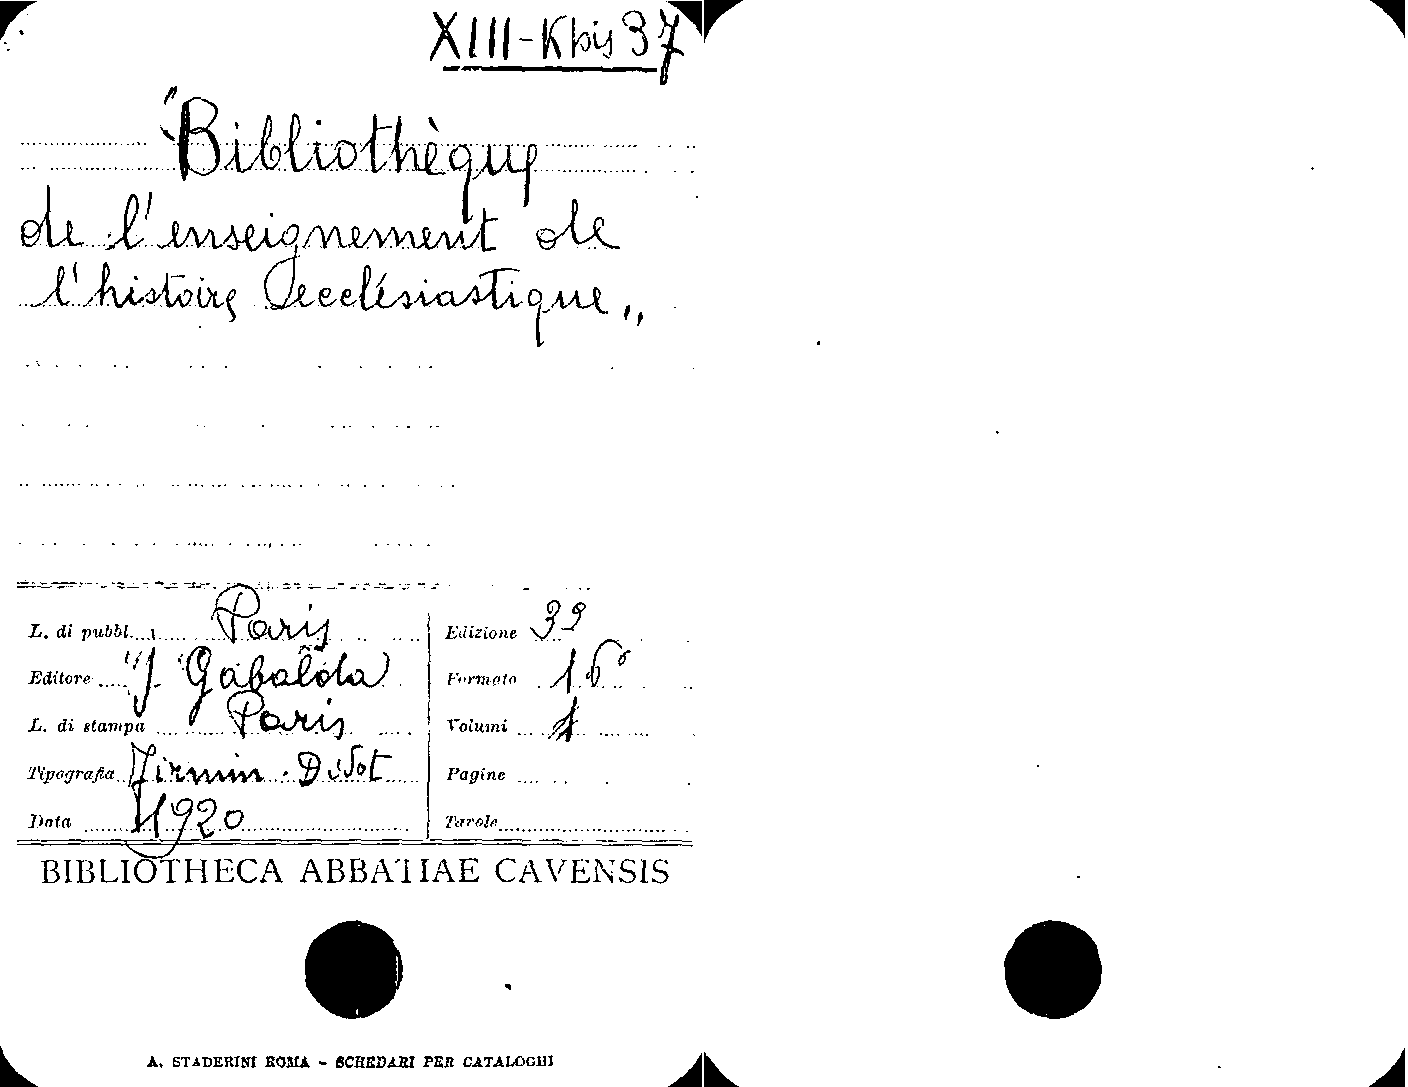 XIII-K bis 37
"Bibliothèque
de l'enseignement de
l'histoire Ecclésiastique,,
L. di pubbl. Paris
Editore J. Gabalda
L. di stampa Paris
Tipografia Firmin-Didot
Data 1920
Edizione 3ª
Formato 16°
Volumi 1
Pagine
Tavole
BIBLIOTHECA ABBATIAE CAVENSIS
A. STADERINI ROMA - SCHEDARI PER CATALOGHI